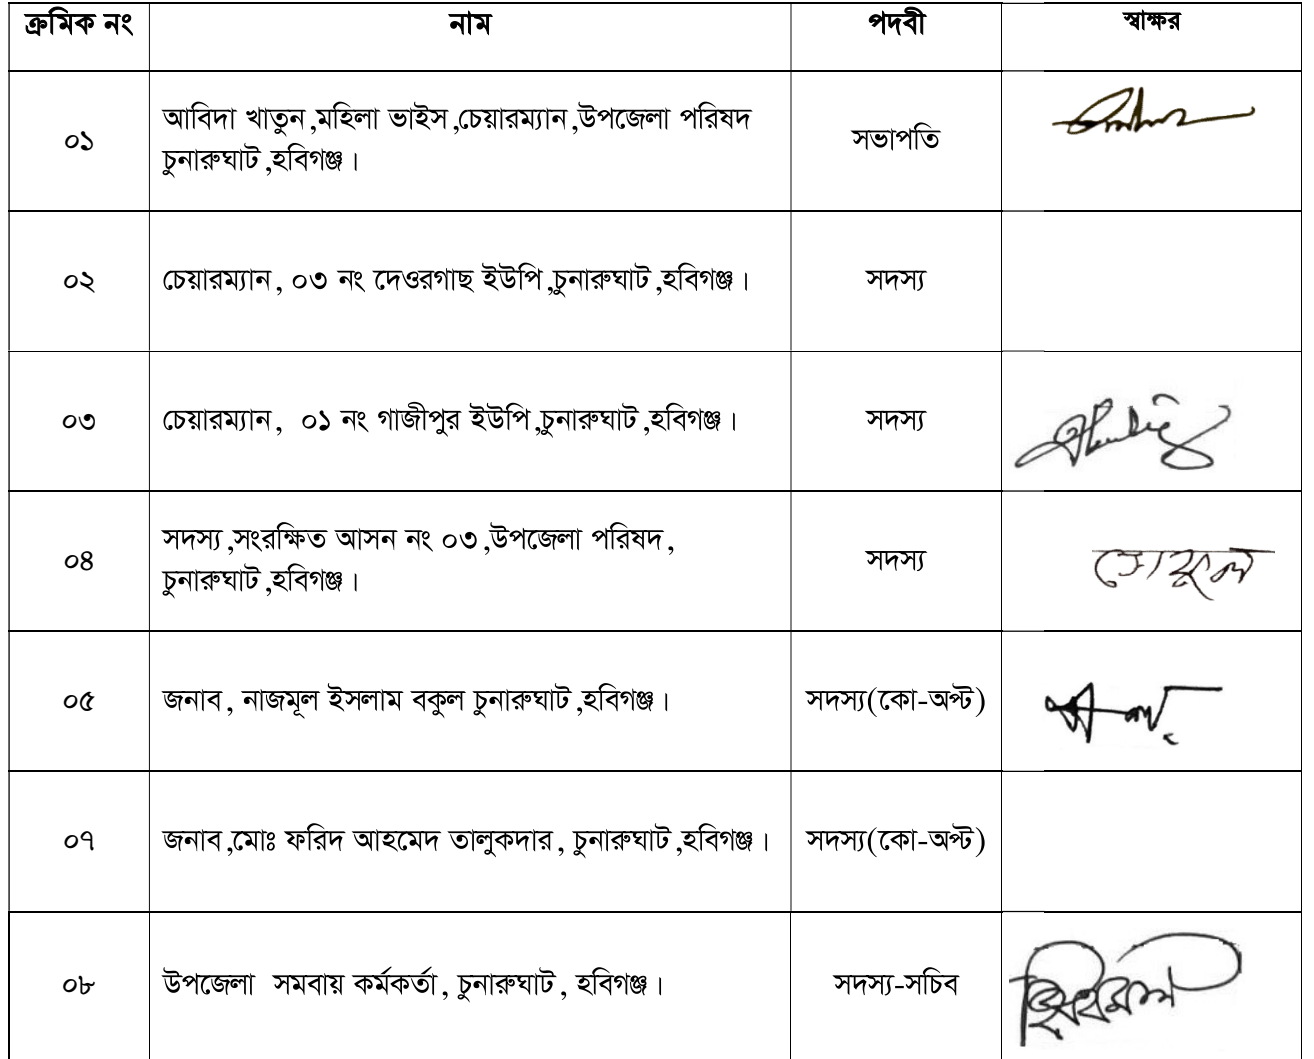 ক্রমিক নং নাম পদবী স্বাক্ষর
০১ আবিদা খাতুন,মহিলা ভাইস,চেয়ারম্যান,উপজেলা পরিষদ সভাপতি
চুনারুঘাট,হবিগঞ্জ।
০২ চেয়ারম্যান, ০৩ নং দেওরগাছ ইউপি,চুনারুঘাট,হবিগঞ্জ। সদস্য
০৩ চেয়ারম্যান, ০১ নং গাজীপুর ইউপি,চুনারুঘাট,হবিগঞ্জ। সদস্য
০৪ সদস্য,সংরক্ষিত আসন নং ০৩,উপজেলা পরিষদ, সদস্য
চুনারুঘাট,হবিগঞ্জ।
০৫ জনাব, নাজমূল ইসলাম বকুল চুনারুঘাট,হবিগঞ্জ। সদস্য(কো-অপ্ট)
০৭ জনাব,মোঃ ফরিদ আহমেদ তালুকদার, চুনারুঘাট,হবিগঞ্জ। সদস্য(কো-অপ্ট)
০৮ উপজেলা সমবায় কর্মকর্তা, চুনারুঘাট, হবিগঞ্জ। সদস্য-সচিব